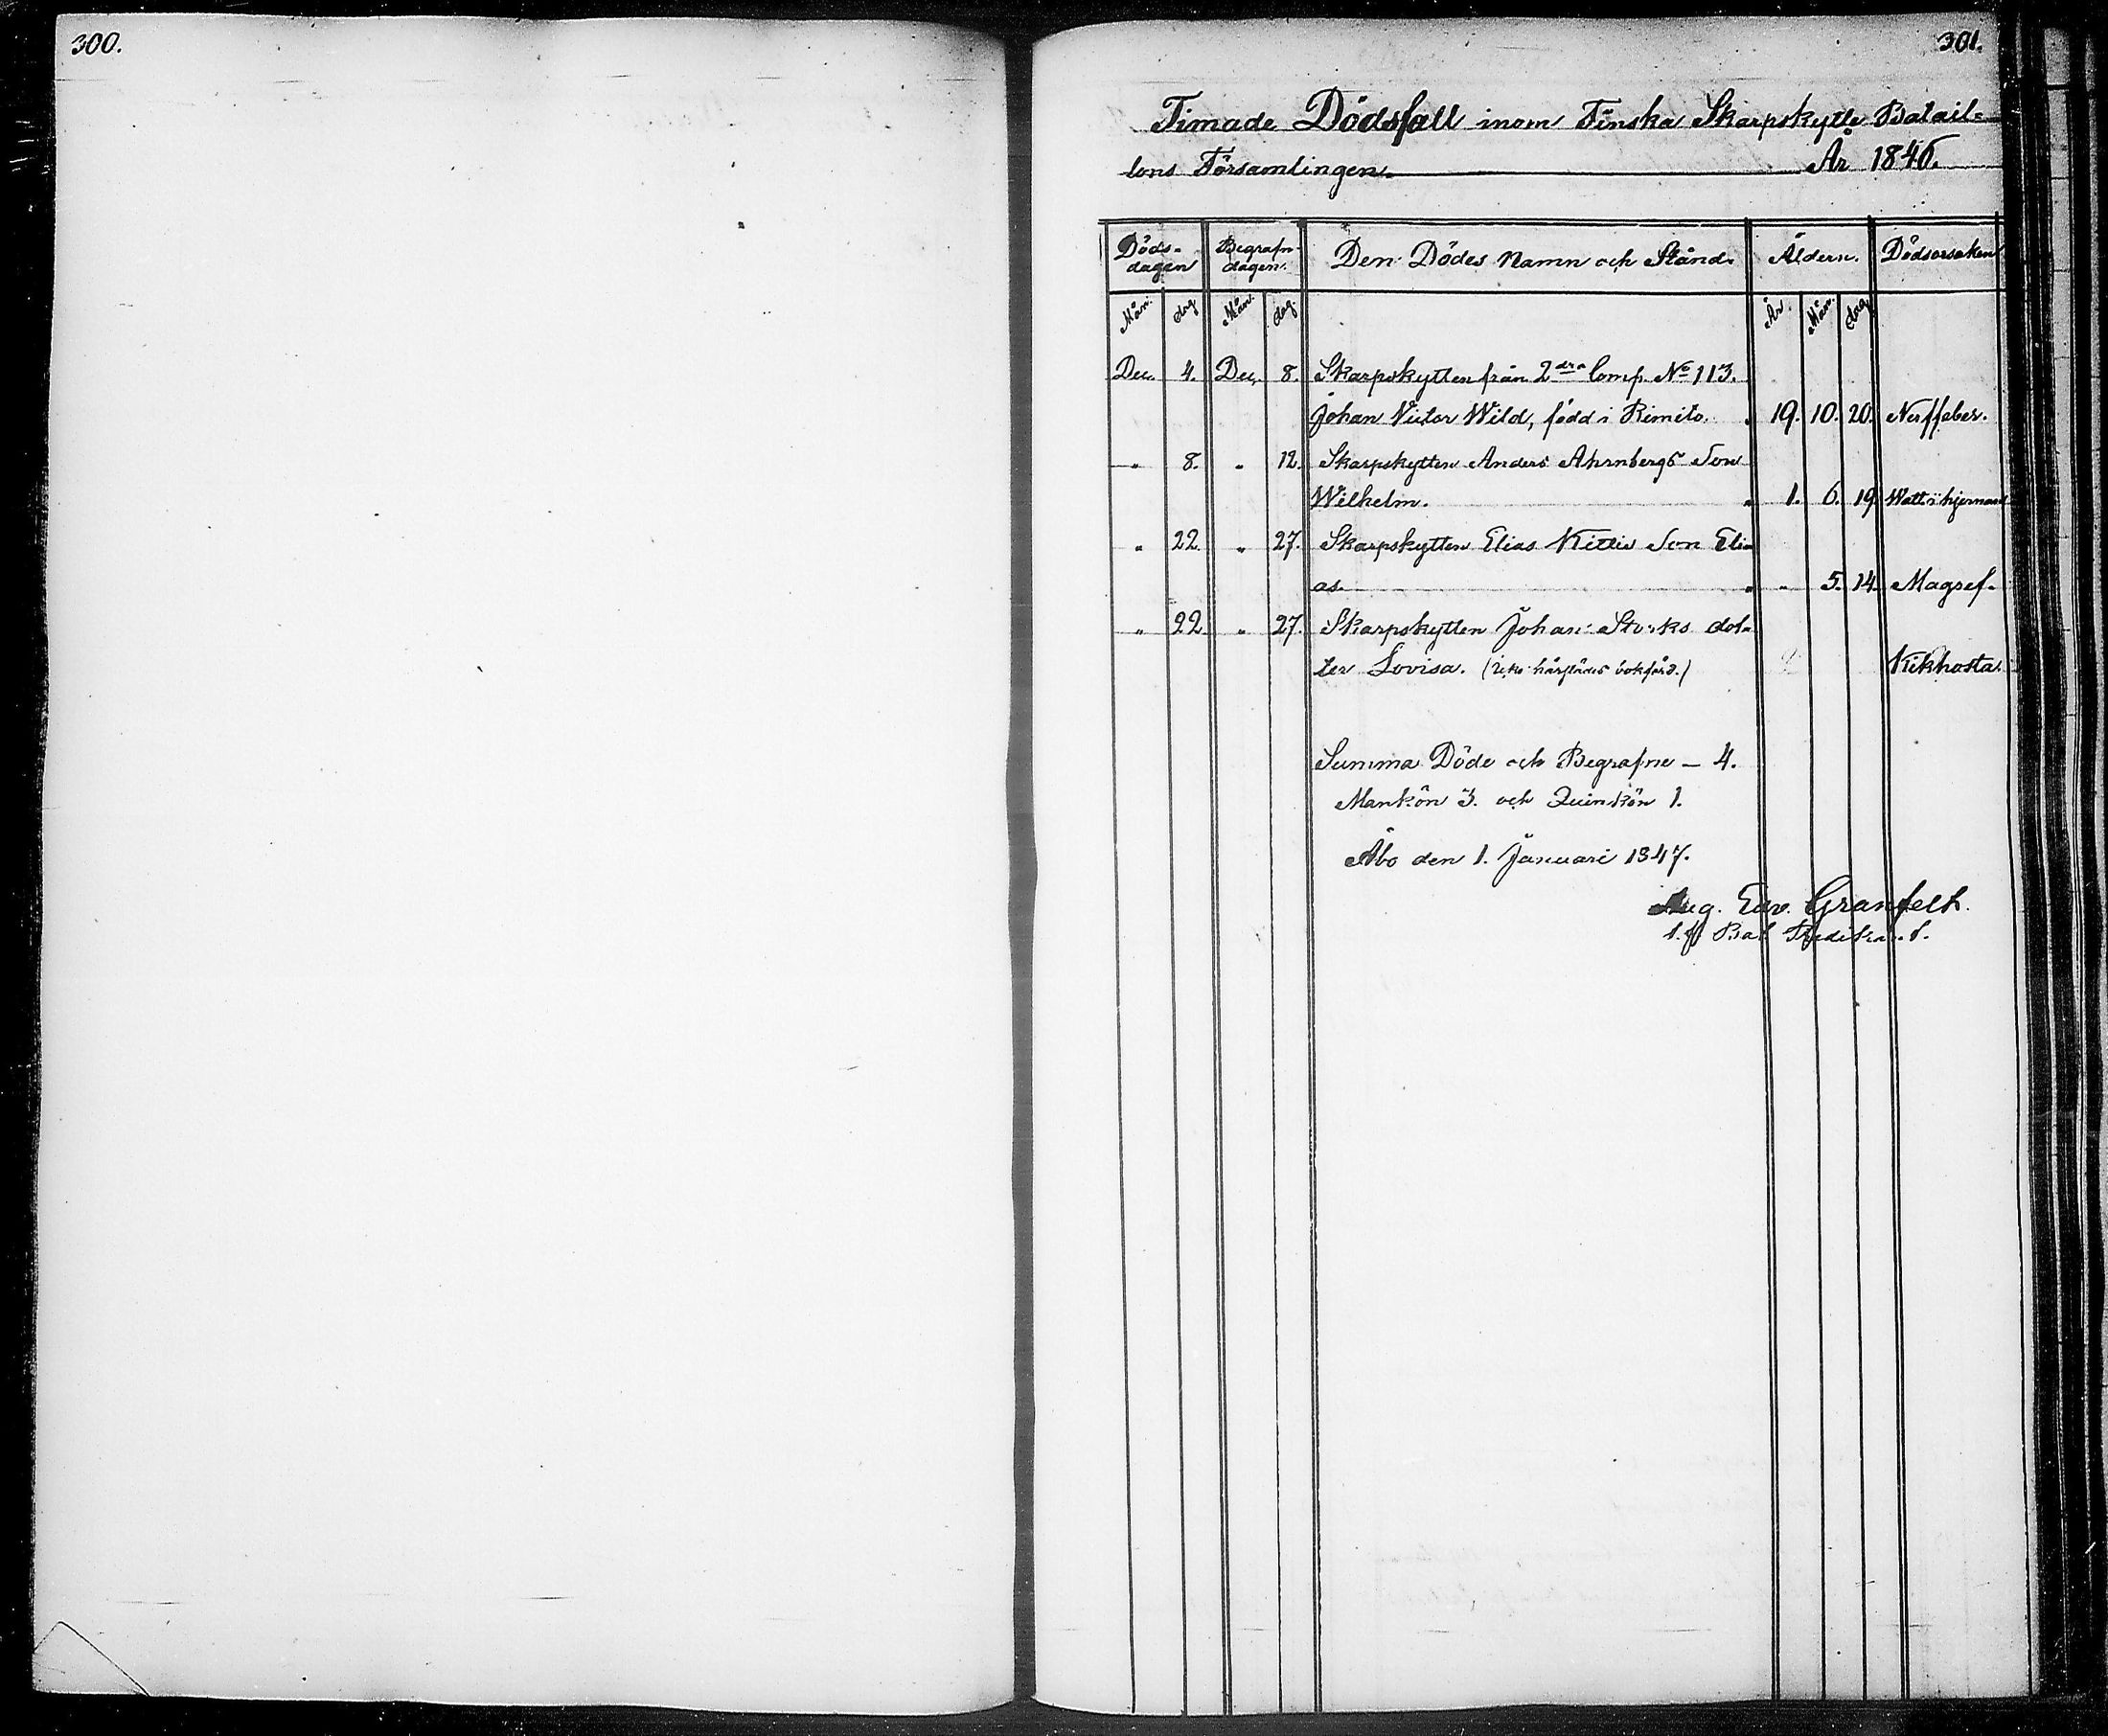 300.
301.
Timade Dödsfall inom Finska Skarpskytte Batail-
lons Församlingen. År 1846.
Döds- Begrafn- Den Dödes Namn och Stånd. Åldern. Dödsorsaken
dagen dagen.
Mån. dag Mån. dag. År. Mån. dag
Dec. 4. Dec. 8. Skarpskytten från 2dra Comp. No 113.
Johan Victor Wild, född i Rimito. 19. 10. 20. Nerffeber.
" 8. " 12. Skarpskytten Anders Ahrnbergs Son
Wilhelm. " 1. 6. 19 Watt i hjernan
" 22. " 27. Skarpskytten Elias Son Eli-
as. " " 5. 14. Magref.
" 22. " 27. Skarpskytten Johan dot-
ter Lovisa. (icke härstädes bokförd.) Kikhosta.
Summa Döde och Begrafne – 4.
Mankön 3. och Quinkön 1.
Åbo den 1. Januari 1847.
Aug. Edv. Granfelt.
Bat.